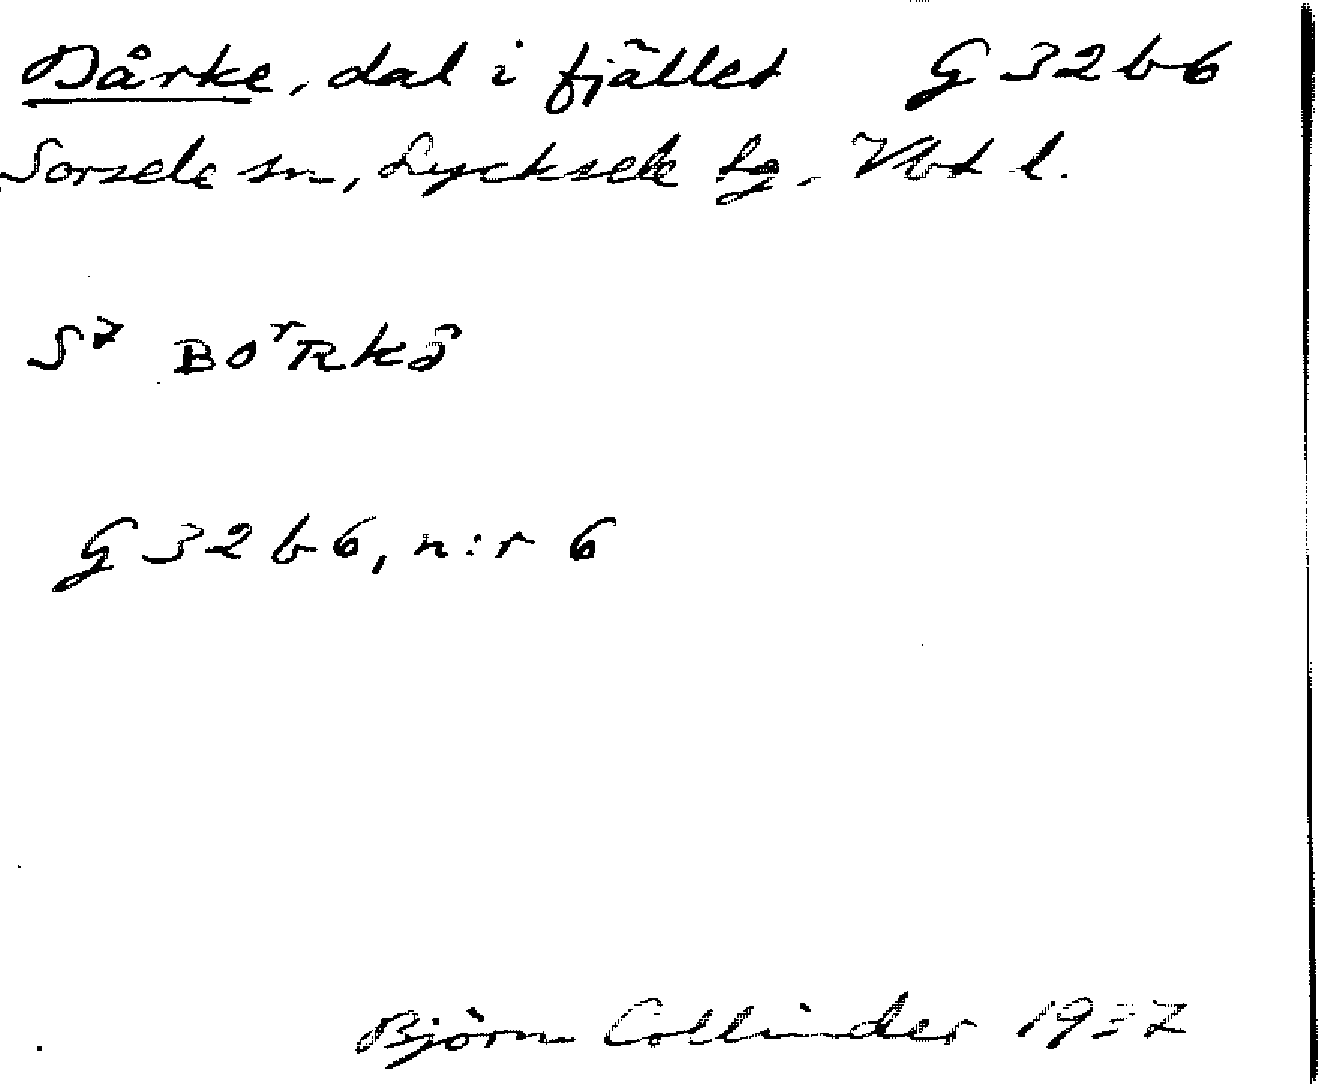 Bårke, dal i fjället G 32 b 6
Sorsele sn, Lycksele tg. Vbt l.
BOʳRKƏ̂
G 32 b 6, n:r 6
Björn Collinder